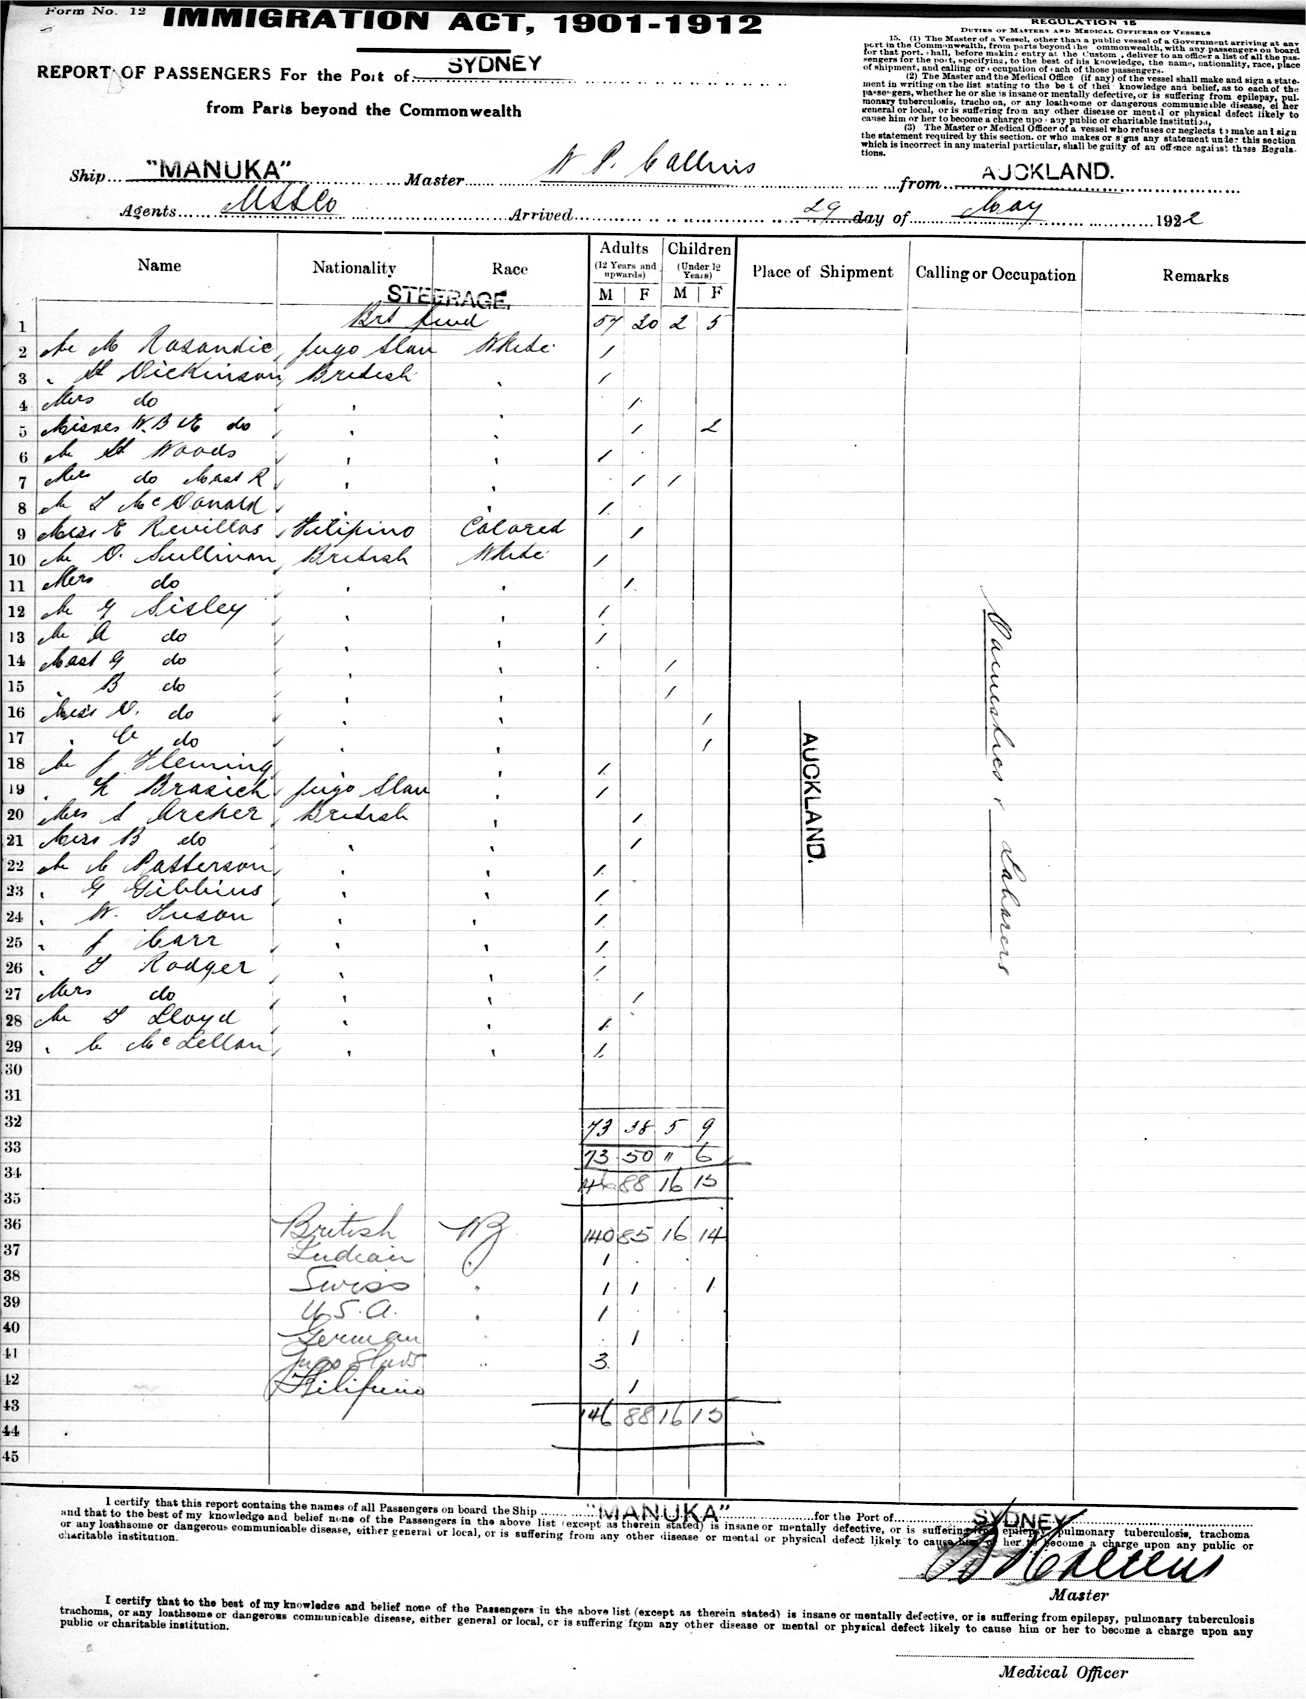 Form No. 12
IMMIGRATION ACT, 1901-1912
REPORT OF PASSENGERS For the Port of SYDNEY
from Parts beyond the Commonwealth
REGULATION 15
DUTIES OF MASTERS AND MEDICAL OFFICERS OF VESSELS
15. (1) The Master of a Vessel, other than a public vessel of a Government arriving at any
port in the Commonwealth, from parts beyond the Commonwealth, with any passengers on board
for that port, shall, before making entry at the Customs, deliver to an officer a list of all the pas-
sengers for the port, specifying, to the best of his knowledge, the name, nationality, race, place
of shipment, and calling or occupation of each of those passengers.
(2) The Master and the Medical Office (if any) of the vessel shall make and sign a state-
ment in writing on the list stating to the best of their knowledge and belief, as to each of the
passengers, whether he or she is insane or mentally defective, or is suffering from epilepsy, pul-
monary tuberculosis, trachoma, or any loathsome or dangerous communicable disease, either
general or local, or is suffering from any other disease or mental or physical defect likely to
cause him or her to become a charge upon any public or charitable institution.
(3) The Master or Medical Officer of a vessel who refuses or neglects to make and sign
the statement required by this section, or who makes or signs any statement under this section
which is incorrect in any material particular, shall be guilty of an offence against these Regula-
tions.
Ship "MANUKA" Master W P Collins from AUCKLAND.
Agents USSCo Arrived 29 day of May 1922
Name Nationality Race Adults (12 Years and upwards) M F Children (Under 12 Years) M F Place of Shipment Calling or Occupation Remarks
STEERAGE.
1 Brt fwd 57 20 2 5
2 Mr M Rosandic Jugo Slav White 1
3 " H Dickinson British " 1
4 Mrs do " " 1
5 Misses W.B & E do " " 1 2
6 Mr H Woods " " 1
7 Mrs do Mast R " " 1 1
8 Mr T McDonald " " 1
9 Miss E Revillas Filipino Colored 1
10 Mr O. Sullivan British White 1
11 Mrs do " " 1
12 Mr G Sisley " " 1
13 Mr A do " " 1
14 Mast G do " " 1
15 " B do " " 1
16 Miss V. do " " 1
17 " C do " " 1
18 Mr J Fleming " " 1
19 " K Brasich Jugo Slav " 1
20 Mrs S Archer British " 1
21 Miss B do " " 1
22 Mr C Patterson " " 1
23 " G Gibbins " " 1
24 " W. Tuson " " 1
25 " J Carr " " 1
26 " T Rodger " " 1
27 Mrs do " " 1
28 Mr T Lloyd " " 1
29 " C McLellan " " 1
30
31
32 73 38 5 9
33 73 50 " 6
34 146 88 16 15
35
36 British W 140 85 16 14
37 Indian " 1
38 Swiss " 1 1 1
39 U.S.A. " 1
40 German " 1
41 Jugo Slavs " 3
42 Filipino 1
43 146 88 16 15
44
45
AUCKLAND.
Domestics & Laborers
I certify that this report contains the names of all Passengers on board the Ship "MANUKA" for the Port of SYDNEY
and that to the best of my knowledge and belief none of the Passengers in the above list (except as therein stated) is insane or mentally defective, or is suffering from epilepsy, pulmonary tuberculosis, trachoma
or any loathsome or dangerous communicable disease, either general or local, or is suffering from any other disease or mental or physical defect likely to cause him or her to become a charge upon any public or
charitable institution.
Master
I certify that to the best of my knowledge and belief none of the Passengers in the above list (except as therein stated) is insane or mentally defective, or is suffering from epilepsy, pulmonary tuberculosis
trachoma, or any loathsome or dangerous communicable disease, either general or local, or is suffering from any other disease or mental or physical defect likely to cause him or her to become a charge upon any
public or charitable institution.
Medical Officer